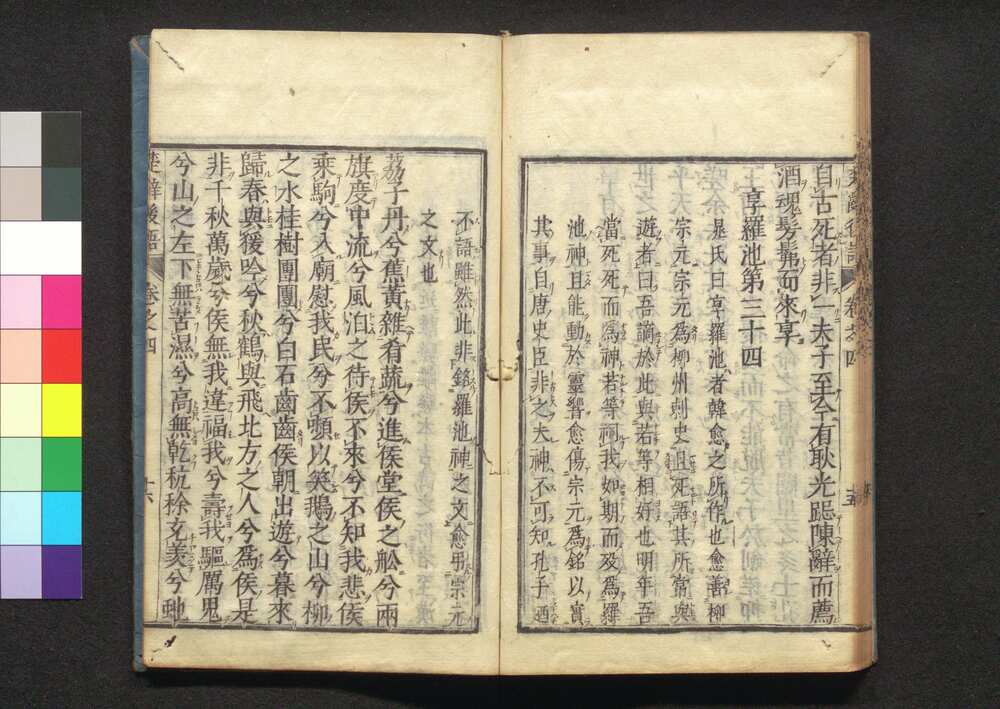 自古死者非一夫子至今有耿光跽陳辭而薦
酒魂髣髴而來享
享羅池第三十四
晁氏曰享羅池者韓愈之所作也愈善柳
宗元宗元為柳州刺史且死語其所嘗與
遊者曰吾謫於此與若等相好也明年吾
當死死而為神若等祠我如期而歿為羅
池神且能動於靈響愈傷宗元為銘以實
其事自唐史臣非之夫神不可知孔子
不語雖然此非銘羅池神之文愈弔宗元
之文也
荔子丹兮蕉黃雜肴蔬兮進侯堂侯之舩兮兩
旗度中流兮風泊之待侯不來兮不知我悲侯
乘駒兮入廟慰我民兮不嚬以笑鵝之山兮柳
之水桂樹團團兮白石齒齒侯朝出遊兮暮來
歸春與猨吟兮秋鶴與飛北方之人兮為侯是
非千秋萬歲兮侯無我違福我兮壽我驅厲鬼
兮山之左下無苦濕兮高無乾秔稌充羡兮虵
楚辭後語 卷之四 十六